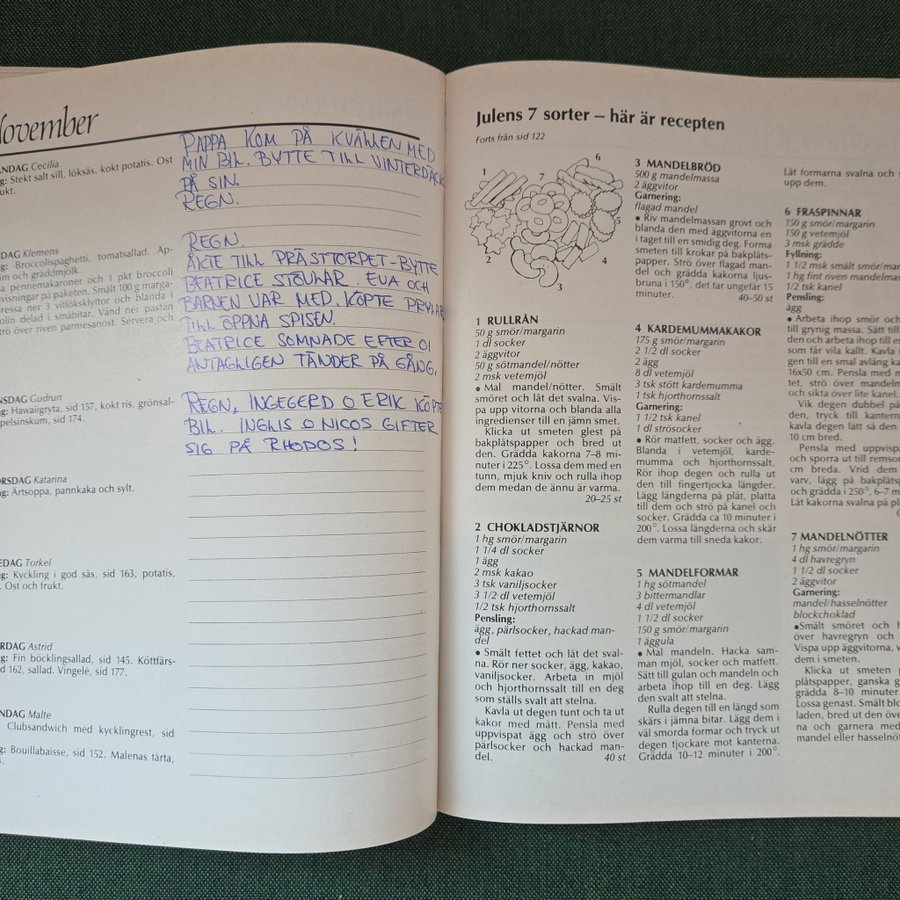 November
NDAG Cecilia
ag: Stekt salt sill, löksås, kokt potatis. Ost
rukt.
DAG Klemens
g: Broccolispaghetti, tomatsallad. Äp-
m och gräddmjölk.
a pennemakaroner och 1 pkt broccoli
visningar på paketen. Smält 100 g marga-
ressa ner 3 vitlöksklyftor och blanda i
olin delad i småbitar. Vänd ner pastan
strö över riven parmesanost. Servera och
NSDAG Gudrun
g: Hawaiigryta, sid 157, kokt ris, grönsal-
pelsinskum, sid 174.
ORSDAG Katarina
g: Ärtsoppa, pannkaka och sylt.
EDAG Torkel
g: Kyckling i god sås, sid 163, potatis,
. Ost och frukt.
RDAG Astrid
g: Fin böcklingsallad, sid 145. Köttfärs-
d 162, sallad. Vingelé, sid 177.
NDAG Malte
Clubsandwich med kycklingrest, sid
g: Bouillabaisse, sid 152. Malenas tårta,
PAPPA KOM PÅ KVÄLLEN MED
MIN BIL. BYTTE TILL VINTERDÄCK
PÅ SIN.
REGN.
REGN.
ÅKTE TILL PRÄSTTORPET-BYTTE
BEATRICE STÖVLAR. EVA OCH
BARNEN VAR MED. KÖPTE PRYLAR
TILL ÖPPNA SPISEN.
BEATRICE SOMNADE EFTER 01
ANTAGLIGEN TÄNDER PÅ GÅNG.
REGN, INGEGERD O ERIK KÖPTE
BIL. INGHIS O NICOS GIFTER
SIG PÅ RHODOS!
Julens 7 sorter – här är recepten
Forts från sid 122
1
7
6
5
2
3
4
1 RULLRÅN
50 g smör/margarin
1 dl socker
2 äggvitor
50 g sötmandel/nötter
2 msk vetemjöl
• Mal mandel/nötter. Smält
smöret och låt det svalna. Vis-
pa upp vitorna och blanda alla
ingredienser till en jämn smet.
Klicka ut smeten glest på
bakplåtspapper och bred ut
den. Grädda kakorna 7–8 mi-
nuter i 225°. Lossa dem med en
tunn, mjuk kniv och rulla ihop
dem medan de ännu är varma.
20–25 st
2 CHOKLADSTJÄRNOR
1 hg smör/margarin
1 1/4 dl socker
1 ägg
2 msk kakao
3 tsk vaniljsocker
3 1/2 dl vetemjöl
1/2 tsk hjorthornssalt
Pensling:
ägg, pärlsocker, hackad man-
del
• Smält fettet och låt det sval-
na. Rör ner socker, ägg, kakao,
vaniljsocker. Arbeta in mjöl
och hjorthornssalt till en deg
som ställs svalt att stelna.
Kavla ut degen tunt och ta ut
kakor med mått. Pensla med
uppvispat ägg och strö över
pärlsocker och hackad man-
del.
40 st
3 MANDELBRÖD
500 g mandelmassa
2 äggvitor
Garnering:
flagad mandel
• Riv mandelmassan grovt och
blanda den med äggvitorna en
i taget till en smidig deg. Forma
smeten till krokar på bakplåts-
papper. Strö över flagad man-
del och grädda kakorna ljus-
bruna i 150°, det tar ungefär 15
minuter.
40–50 st
4 KARDEMUMMAKAKOR
175 g smör/margarin
2 1/2 dl socker
2 ägg
8 dl vetemjöl
3 tsk stött kardemumma
1 tsk hjorthornssalt
Garnering:
1 1/2 tsk kanel
1 dl strösocker
• Rör matfett, socker och ägg.
Blanda i vetemjöl, karde-
mumma och hjorthornssalt.
Rör ihop degen och rulla ut
den till fingertjocka längder.
Lägg längderna på plåt, platta
till dem och strö på kanel och
socker. Grädda ca 10 minuter i
200°. Lossa längderna och skär
dem varma till sneda kakor.
5 MANDELFORMAR
1 hg sötmandel
3 bittermandlar
4 dl vetemjöl
1 1/2 dl socker
150 g smör/margarin
1 äggula
• Mal mandeln. Hacka sam-
man mjöl, socker och matfett.
Sätt till gulan och mandeln och
arbeta ihop till en deg. Lägg
den svalt att stelna.
Rulla degen till en längd som
skärs i jämna bitar. Lägg dem i
väl smorda formar och tryck ut
degen tjockare mot kanterna.
Grädda 10–12 minuter i 200°.
Låt formarna svalna och s
upp dem.
6 FRASPINNAR
150 g smör/margarin
150 g vetemjöl
3 msk grädde
Fyllning:
1 1/2 msk smält smör/mar
1 hg fint riven mandelmas
1/2 tsk kanel
Pensling:
ägg
• Arbeta ihop smör och
till grynig massa. Sätt till
den och arbeta ihop till e
som får vila kallt. Kavla
gen till en smal avlång ka
16x50 cm. Pensla med m
tet, strö över mandelm
och sikta över lite kanel.
Vik degen dubbel på
den, tryck till kanterna
kavla degen lätt så den
10 cm bred.
Pensla med uppvispat
och sporra ut till remsor
cm breda. Vrid dem
varv, lägg på bakplåtspa
och grädda i 250°, 6–7 m
Låt kakorna svalna på pl
7 MANDELNÖTTER
1 hg smör/margarin
4 dl havregryn
1 1/2 dl socker
2 äggvitor
Garnering:
mandel/hasselnötter
blockchoklad
•Smält smöret och h
över havregryn och
Vispa upp äggvitorna, v
dem i smeten.
Klicka ut smeten
plåtspapper, ganska g
grädda 8–10 minuter
Lossa genast. Smält blo
laden, bred ut den öve
na och garnera med
mandel eller hasselnöt